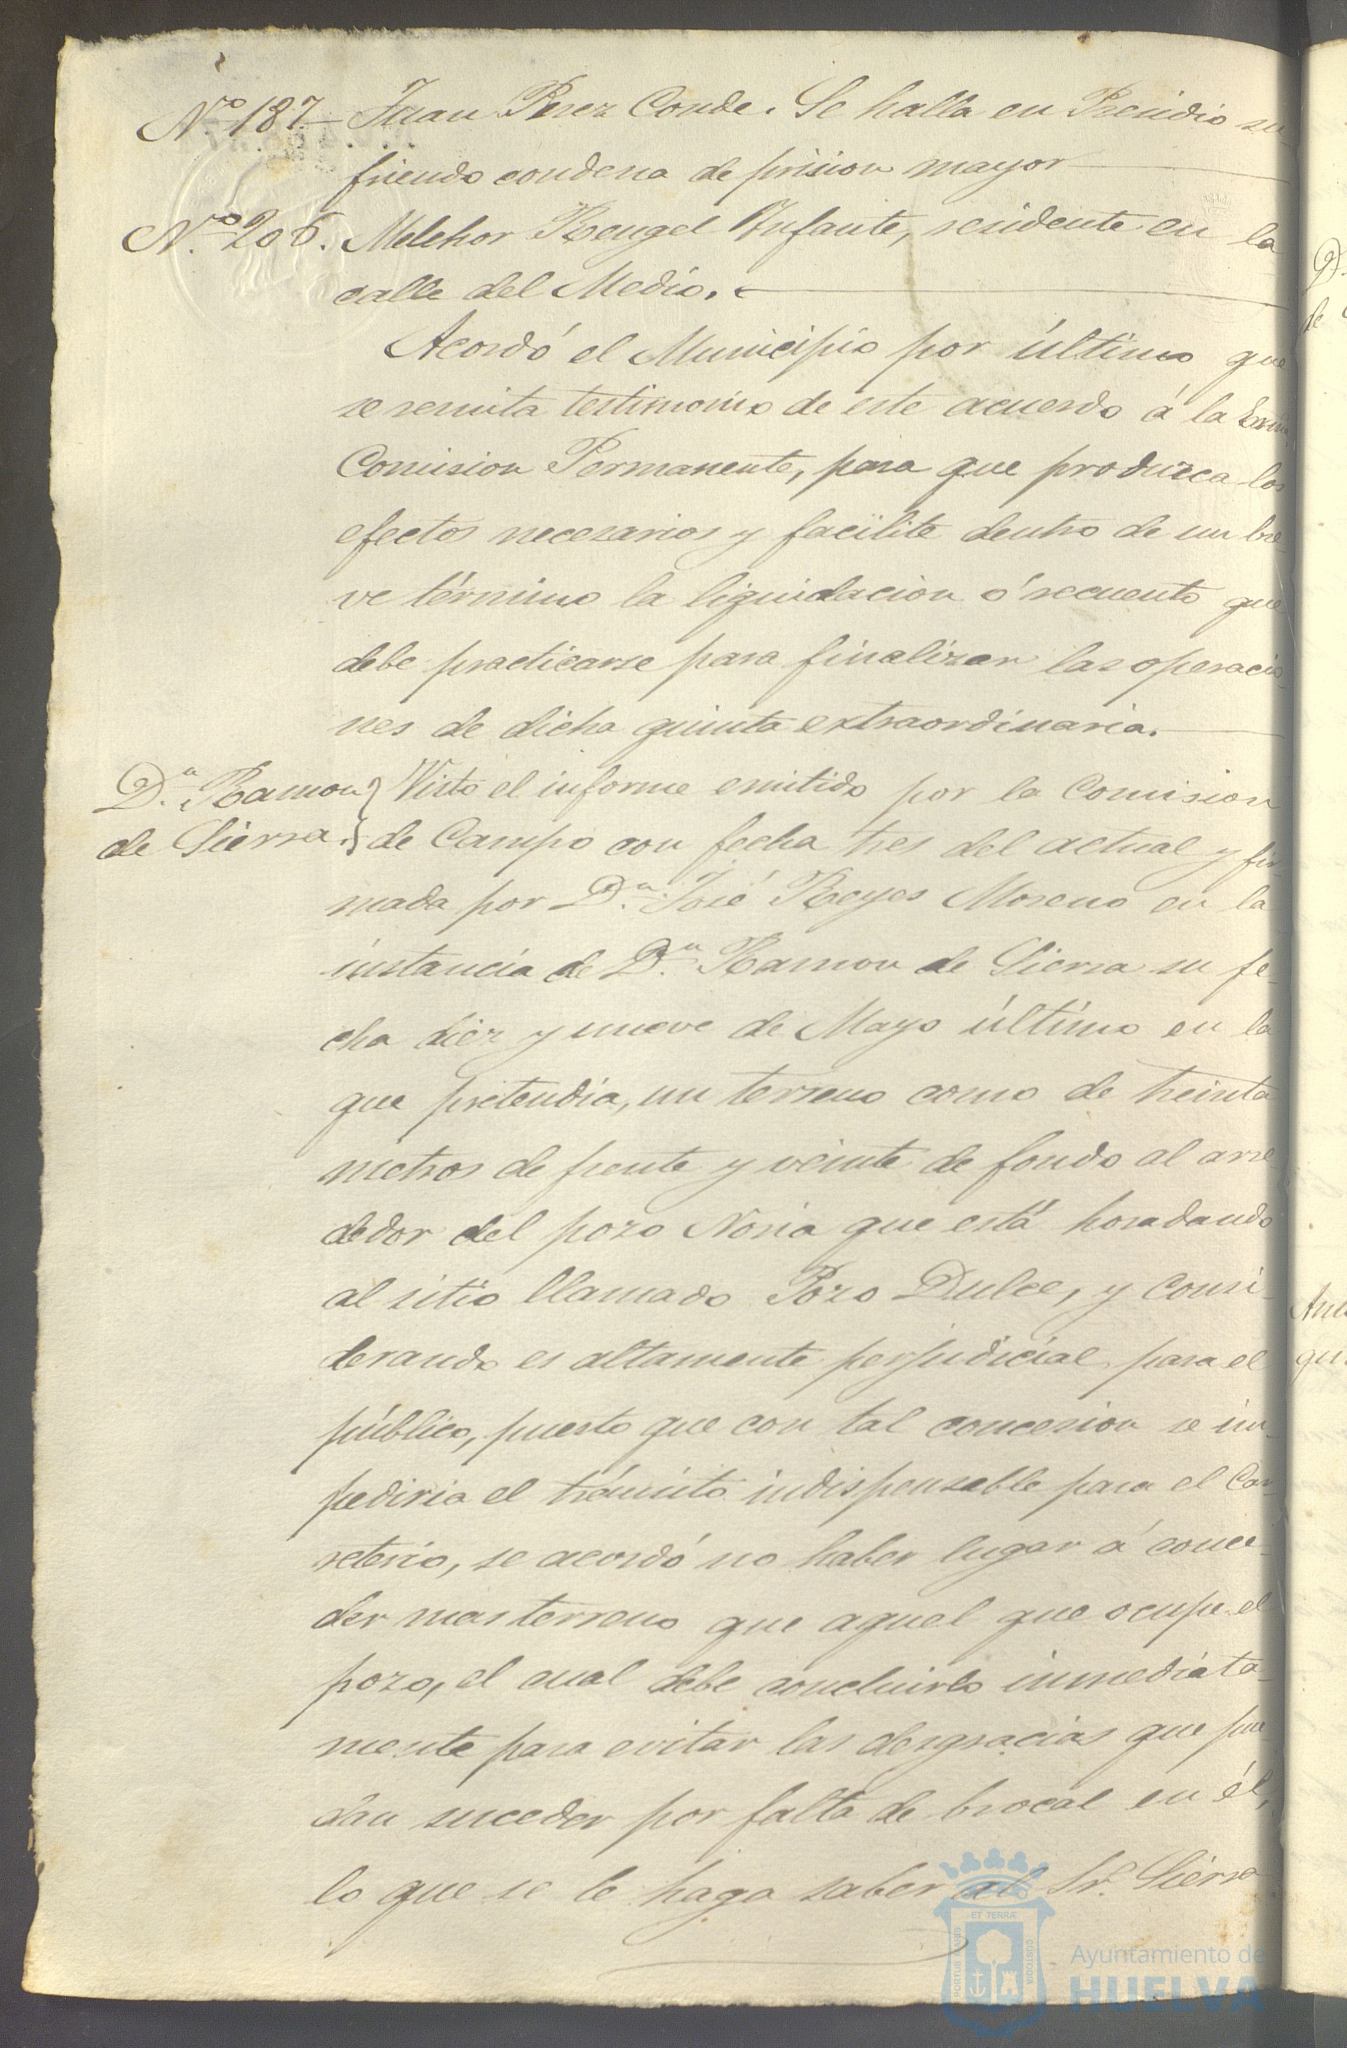 Nº 187 - Juan Perez Conde. Se halla en Presidio su
friendo condena de prision mayor
Nº 206. Melchor Rengel Infante, residente en la
calle del Medio.
Acordó el Municipio por último que
se remita testimonio de este acuerdo á la Exma
Comision Permanente, para que produzca los
efectos necesarios y facilite dentro de un bre-
ve término la liquidacion ó recuento que
debe practicarse para finalizar las operacio-
nes de dicha quinta extraordinaria.
D.n Ramon
de Sierra.
Visto el informe emitido por la Comision
de Campo con fecha tres del actual y fir-
mada por D.n José Reyes Moreno en la
instancia de D.n Ramon de Sierra su fe-
cha diez y nueve de Mayo último en la
que pretendia, un terreno como de treinta
metros de frente y veinte de fondo al arre
dedor del pozo Noria que está horadando
al sitio llamado Pozo Dulce, y consi-
derando es altamente perjudicial para el
público, puesto que con tal concesion se im-
pediria el tránsito indispensable para el Car-
reterio, se acordó no haber lugar á conce-
der mas terreno que aquel que ocupe el
pozo, el cual debe concluirlo inmediata-
mente para evitar las desgracias que pue
dan suceder por falta de brocal en él,
lo que se le haga saber al Sr. Sierra
PORTUS MARIS
ET TERRÆ
CUSTODIA
Ayuntamiento de
HUELVA